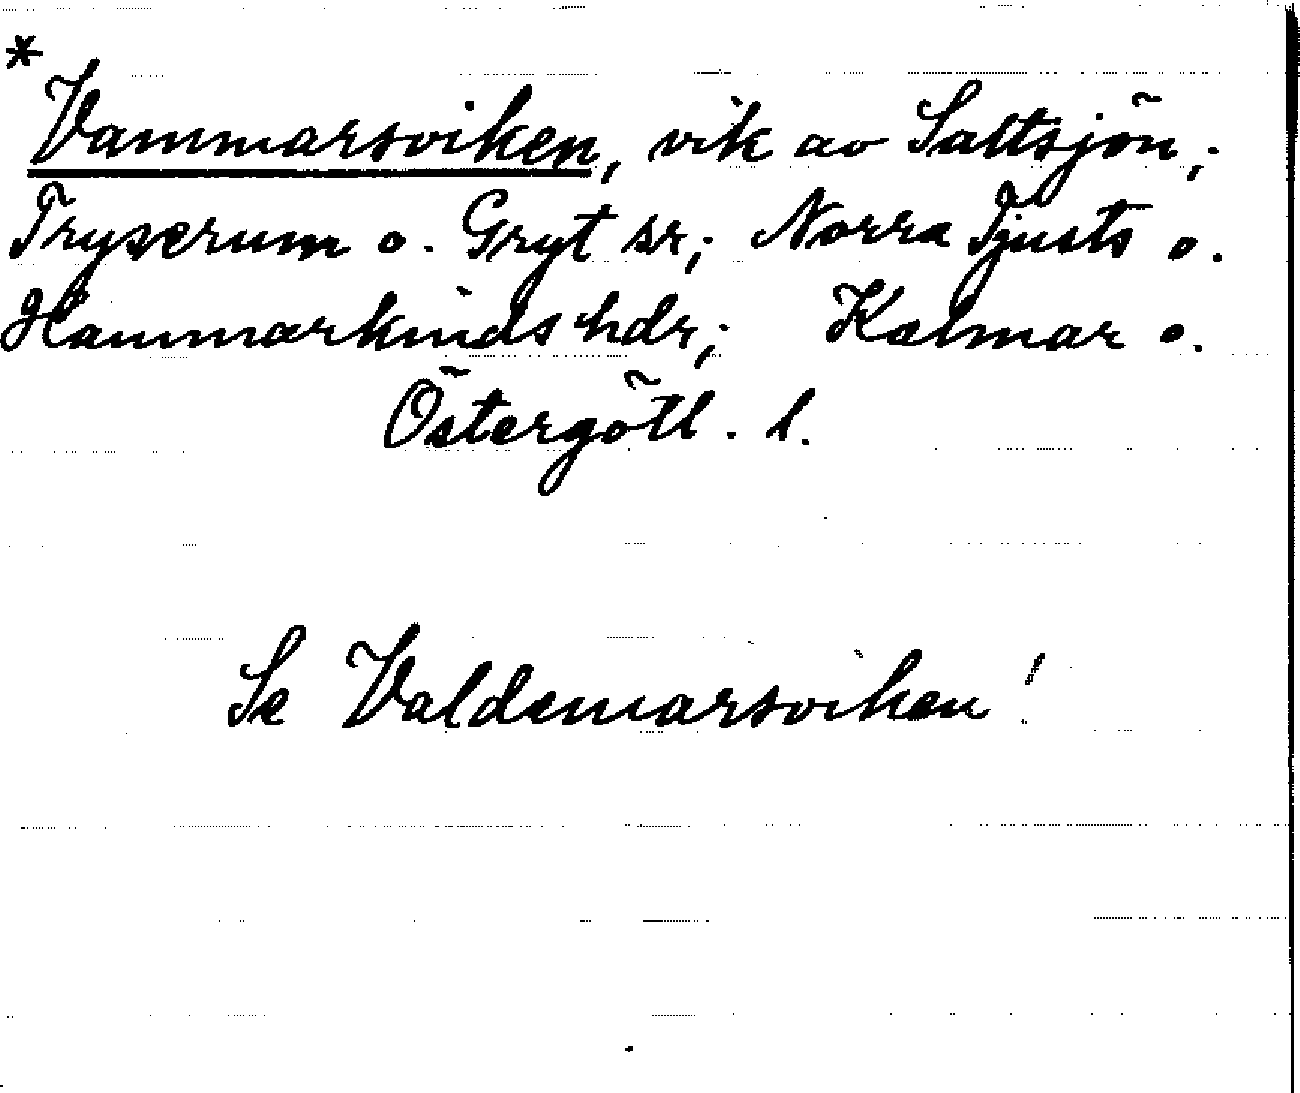 *
Vammarsviken, vik av Saltsjön,;
Tryserum o. Gryt sr,; Norra Tjusts o.
Hammarkinds hdr,; Kalmar o.
Östergötl. l.
Se Valdemarsviken!